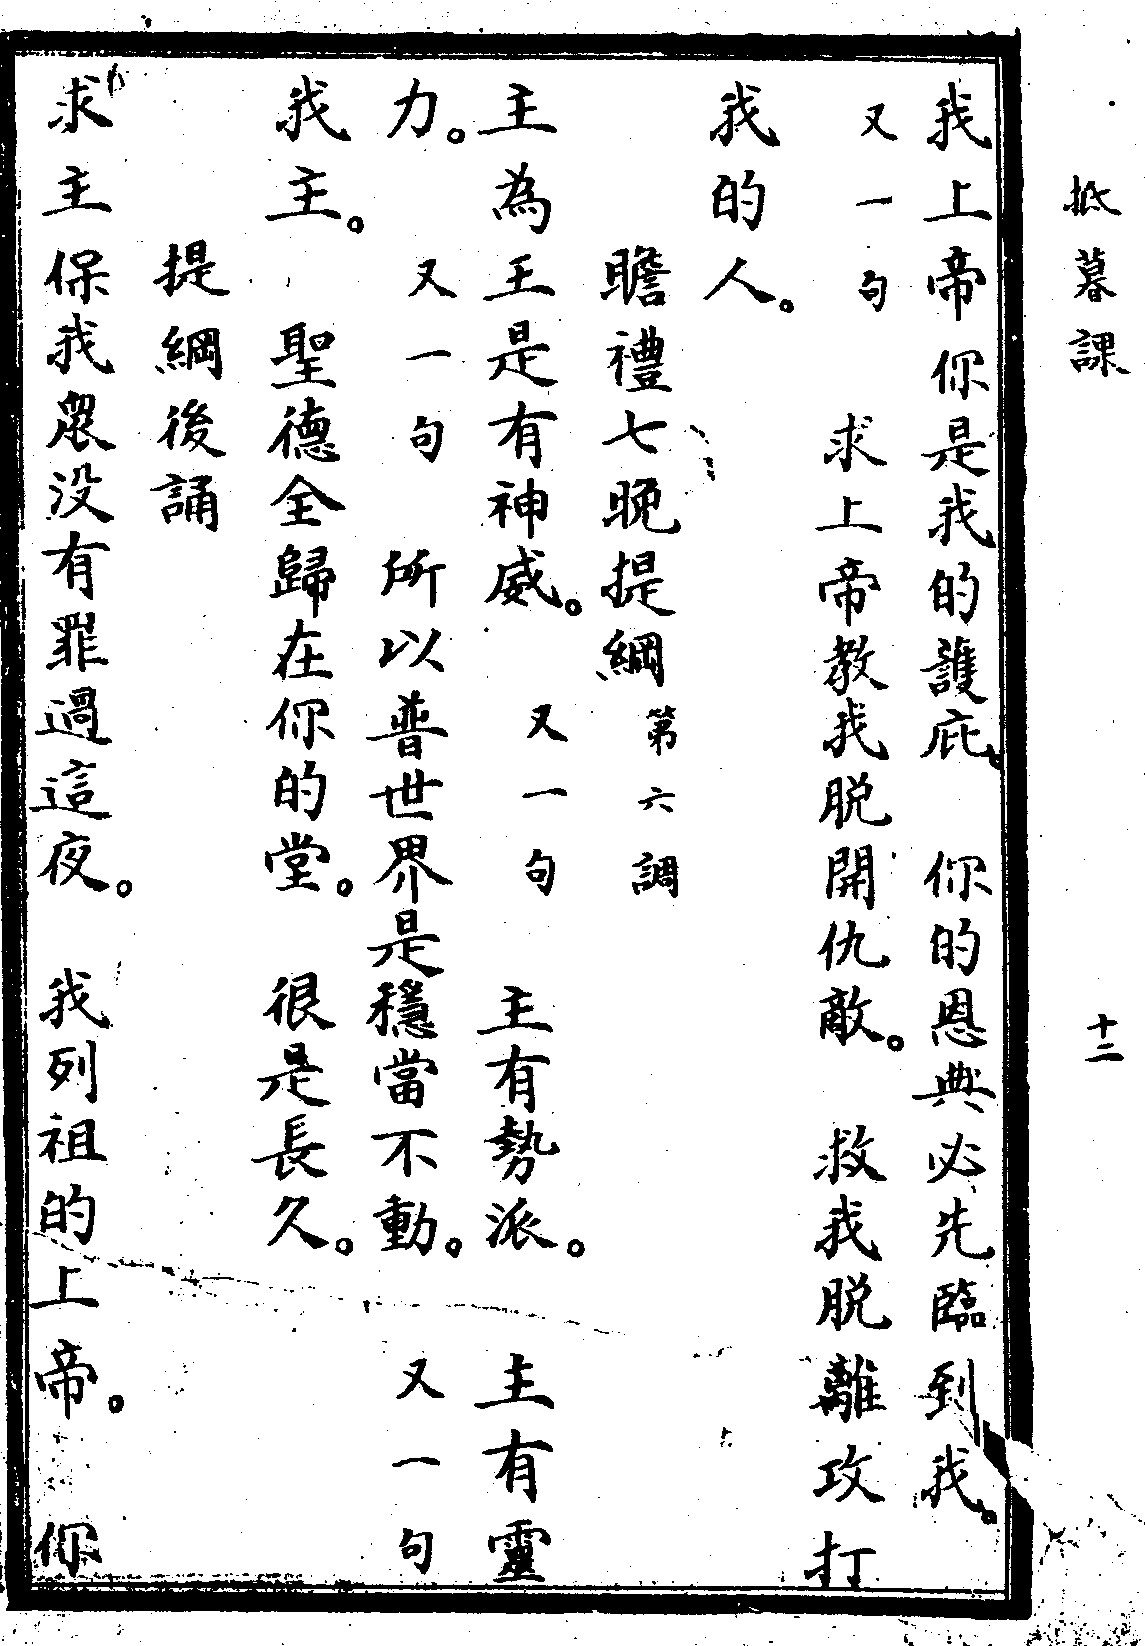 抵暮課 十二
我上帝你是我的護庇。 你的恩典必先臨到我。
又一句 求上帝教我脱開仇敵。 救我脱離攻打
我的人。
瞻禮七晚提綱 第六調
主為王是有神威。 又一句 主有勢派。 主有靈
力。 又一句 所以普世界是穩當不動。 又一句
我主。 聖德全歸在你的堂。 很是長久。
提綱後誦
求主保我眾没有罪過這夜。 我列祖的上帝。你